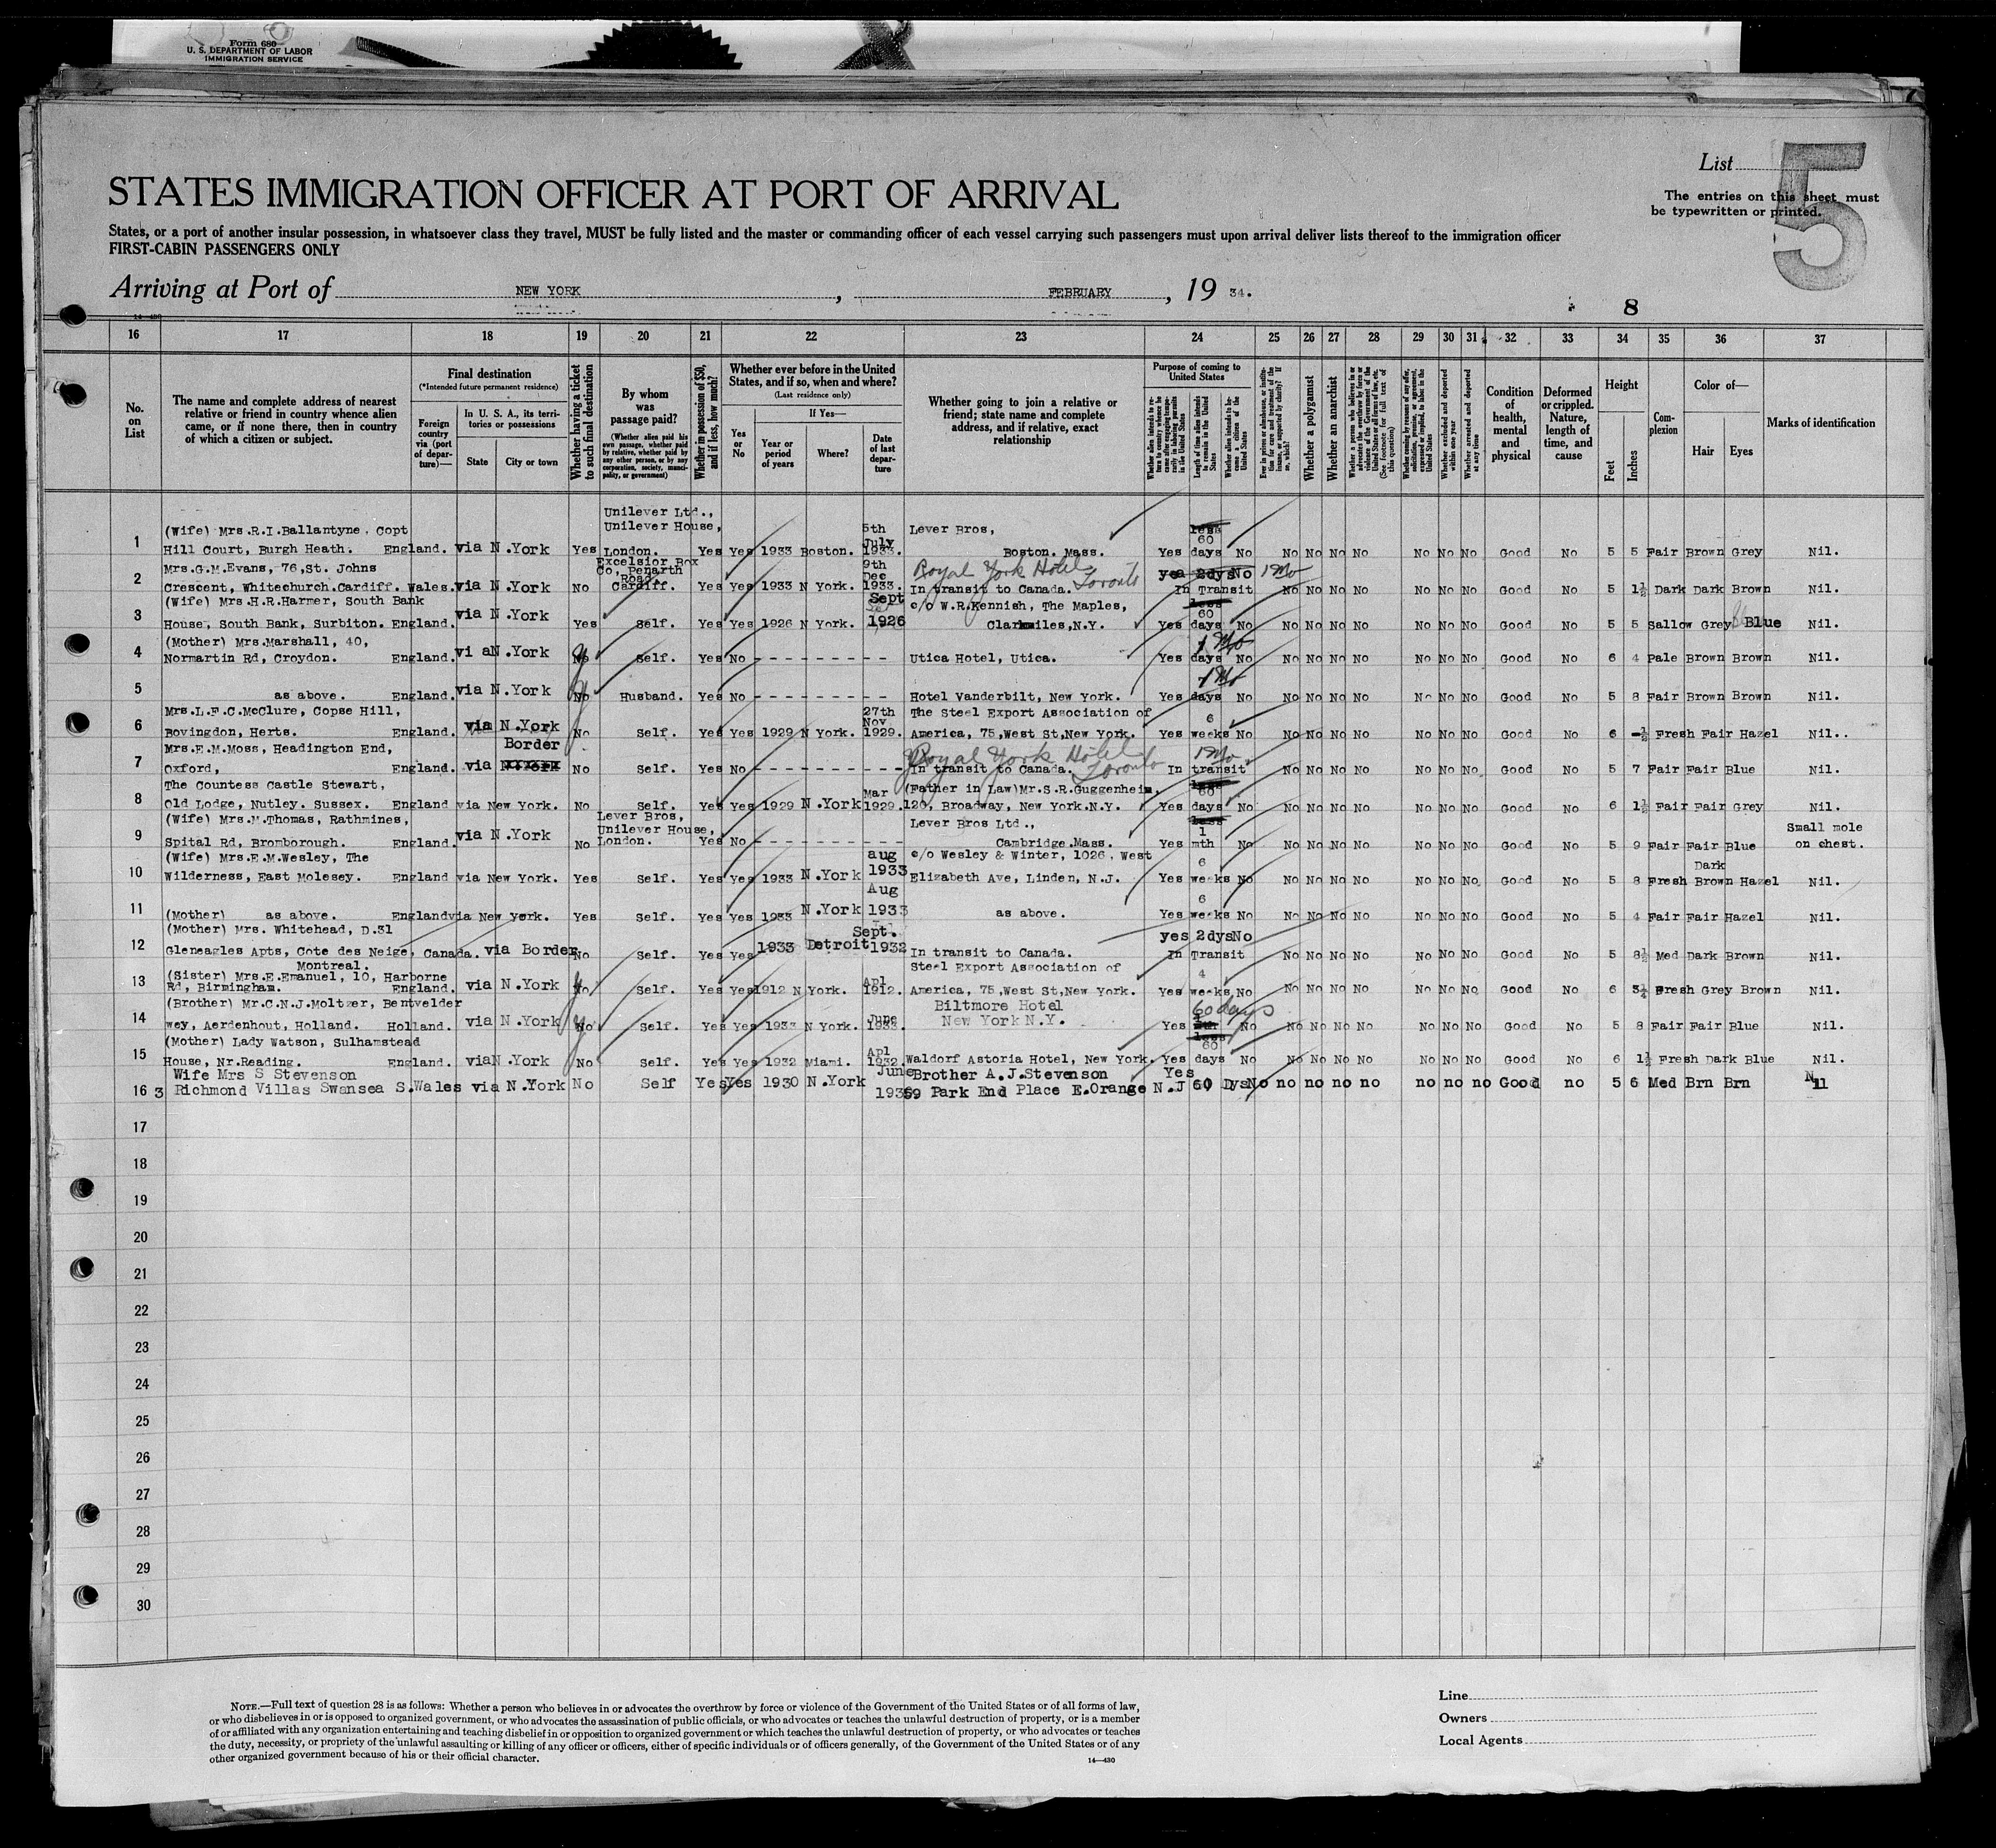 Form 680
U. S. DEPARTMENT OF LABOR
IMMIGRATION SERVICE
List
5
The entries on this sheet must
be typewritten or printed.
STATES IMMIGRATION OFFICER AT PORT OF ARRIVAL
States, or a port of another insular possession, in whatsoever class they travel, MUST be fully listed and the master or commanding officer of each vessel carrying such passengers must upon arrival deliver lists thereof to the immigration officer
FIRST-CABIN PASSENGERS ONLY
Arriving at Port of NEW YORK, FEBRUARY, 19 34.
8
14—430
16 17 18 19 20 21 22 23 24 25 26 27 28 29 30 31 32 33 34 35 36 37
No. on List
The name and complete address of nearest relative or friend in country whence alien came, or if none there, then in country of which a citizen or subject.
Final destination
(*Intended future permanent residence)
Foreign country via (port of departure)—
In U. S. A., its territories or possessions
State
City or town
Whether having a ticket to such final destination
By whom was passage paid?
(Whether alien paid his own passage, whether paid by relative, whether paid by any other person, or by any corporation, society, municipality, or government)
Whether in possession of $50, and if less, how much?
Whether ever before in the United States, and if so, when and where?
(Last residence only)
Yes or No
If Yes—
Year or period of years
Where?
Date of last departure
Whether going to join a relative or friend; state name and complete address, and if relative, exact relationship
Purpose of coming to United States
Length of time alien intends to remain in the United States
Whether alien intends to become a citizen of the United States
Whether a polygamist
Whether an anarchist
(See footnote for full text of this question)
Whether excluded and deported within one year
Whether arrested and deported at any time
Condition of health, mental and physical
Deformed or crippled. Nature, length of time, and cause
Height
Feet
Inches
Complexion
Color of—
Hair
Eyes
Marks of identification
1 (Wife) Mrs.R.I.Ballantyne, Copt Hill Court, Burgh Heath. England. via N.York Yes Unilever Ltd., Unilever House, London. Yes Yes 1933 Boston. 5th July 1933. Lever Bros, Boston. Mass. Yes less 60 days No No No No No No No No Good No 5 5 Fair Brown Grey Nil.
2 Mrs.G.M.Evans, 76,St. Johns Crescent, Whitechurch.Cardiff. Wales. via N.York No Excelsior Box Co, Penarth Road Cardiff. Yes Yes 1933 N York. 9th Dec 1933. Royal York Hotel Toronto In transit to Canada. yes 2dys No 1 Mo In Transit No No No No No No No Good No 5 1½ Dark Dark Brown Nil.
3 (Wife) Mrs.H.R.Harmer, South Bank House, South Bank, Surbiton. England. via N.York Yes Self. Yes Yes 1926 N York. Sept 1926 c/o W.R.Kennish, The Maples, N.Y. Yes less 60 days No No No No No No No No Good No 5 5 Sallow Grey Blue Nil.
4 (Mother) Mrs.Marshall, 40, Normartin Rd, Croydon. England. vi aN.York No Self. Yes No - - - - - - - - - Utica Hotel, Utica. Yes 1 Mo days No No No No No No No No Good No 6 4 Pale Brown Brown Nil.
5 as above. England. via N.York No Husband. Yes No - - - - - - - - - Hotel Vanderbilt, New York. Yes 1 Mo days No No No No No No No No Good No 5 8 Fair Brown Brown Nil.
6 Mrs.L.F.C.McClure, Copse Hill, Bovingdon, Herts. England. via N.York No Self. Yes Yes 1929 N York. 27th Nov 1929. The Steel Export Association of America, 75,West St,New York. Yes 6 weeks No No No No No No No No Good No 6 -½ Fresh Fair Hazel Nil..
7 Mrs.E.M.Moss, Headington End, Oxford, England. via Border N.York No Self. Yes No - - - - - - - - - Royal York Hotel Toronto In transit to Canada. 1 Mo In transit No No No No No No No Good No 5 7 Fair Fair Blue Nil.
8 The Countess Castle Stewart, Old Lodge, Nutley. Sussex. England via New York. No Self. Yes Yes 1929 N.York Mar 1929. (Father in Law)Mr.S.R.Guggenheim, 120, Broadway, New York.N.Y. Yes less 60 days No No No No No No No No Good No 6 1½ Fair Fair Grey Nil.
9 (Wife) Mrs.M.Thomas, Rathmines, Spital Rd, Bromborough. England. via N.York No Lever Bros, Unilever House, London. Yes No - - - - - - - - - Lever Bros Ltd., Cambridge.Mass. Yes less 1 mth No No No No No No No No Good No 5 9 Fair Fair Blue Small mole on chest.
10 (Wife) Mrs.E.M.Wesley, The Wilderness, East Molesey. England via New York. Yes Self. Yes Yes 1933 N.York aug 1933 c/o Wesley & Winter, 1026, West Elizabeth Ave, Linden, N.J. Yes 6 weeks No No No No No No No No Good No 5 8 Fresh Dark Brown Hazel Nil.
11 (Mother) as above. England via New York. Yes Self. Yes Yes 1933 N.York Aug 1933 as above. Yes 6 weeks No No No No No No No No Good No 5 4 Fair Fair Hazel Nil.
12 (Mother) Mrs. Whitehead, D.31 Gleneagles Apts, Cote des Neige, Montreal. Canada. via Border No Self. Yes Yes 1933 Detroit Sept. 1932 In transit to Canada. yes 2dys No In Transit No No No No No No No Good No 5 8½ Med Dark Brown Nil.
13 (Sister) Mrs.E.Emanuel, 10, Harborne Rd, Birmingham. England. via N.York No Self. Yes Yes 1912 N York. Apl 1912. Steel Export Association of America, 75,West St,New York. Yes 4 weeks No No No No No No No No Good No 6 3½ Fresh Grey Brown Nil.
14 (Brother) Mr.C.N.J.Moltzer, Bentvelder wey, Aerdenhout, Holland. Holland. via N.York No Self. Yes Yes 1933 N York. June 1933. Biltmore Hotel New York N.Y. Yes 60 days 1 mth No No No No No No No No Good No 5 8 Fair Fair Blue Nil.
15 (Mother) Lady Watson, Sulhamstead House, Nr.Reading. England. viaN.York No Self. Yes Yes 1932 Miami. Apl 1932. Waldorf Astoria Hotel, New York. Yes less 60 days No No No No No No No No Good No 6 1½ Fresh Dark Blue Nil.
16 Wife Mrs S Stevenson 3 Richmond Villas Swansea S.Wales via N.York No Self Yes Yes 1930 N.York June Brother A.J.Stevenson 69 Park End Place E.Orange N.J Yes 60 Dys No no no no no no no no Good no 5 6 Med Brn Brn N11
17
18
19
20
21
22
23
24
25
26
27
28
29
30
NOTE.—Full text of question 28 is as follows: Whether a person who believes in or advocates the overthrow by force or violence of the Government of the United States or of all forms of law,
or who disbelieves in or is opposed to organized government, or who advocates the assassination of public officials, or who advocates or teaches the unlawful destruction of property, or is a member
of or affiliated with any organization entertaining and teaching disbelief in or opposition to organized government or which teaches the unlawful destruction of property, or who advocates or teaches
the duty, necessity, or propriety of the unlawful assaulting or killing of any officer or officers, either of specific individuals or of officers generally, of the Government of the United States or of any
other organized government because of his or their official character.
14—430
Line
Owners
Local Agents